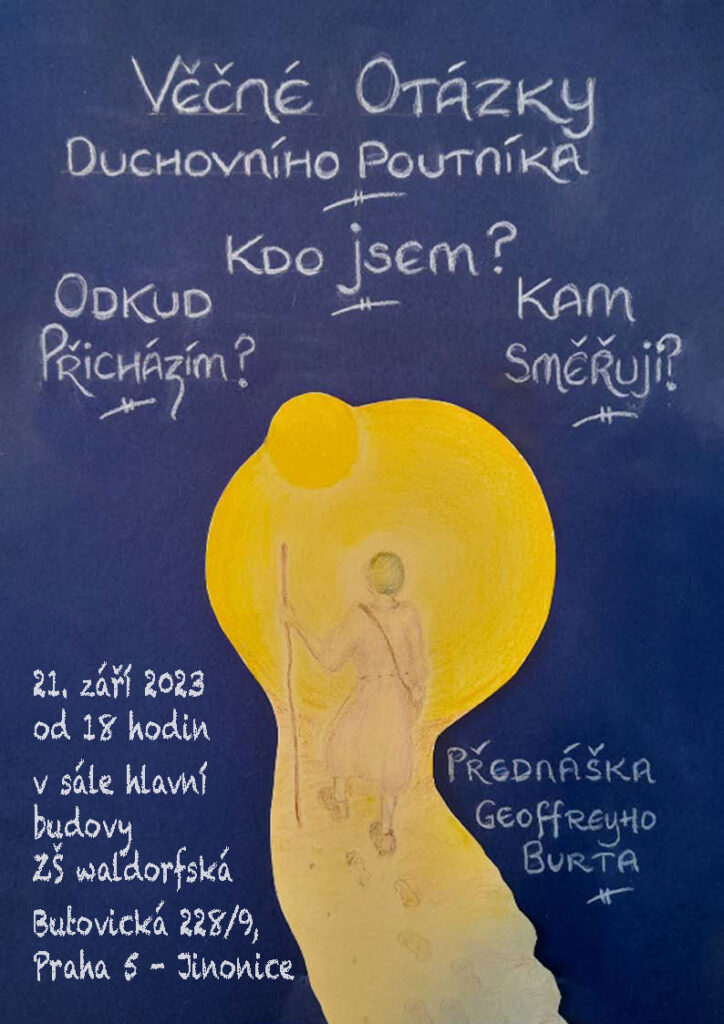 Věčné Otázky
Duchovního Poutníka
Kdo jsem?
Odkud
Přicházím?
Kam
Směřuji?
21. září 2023
od 18 hodin
v sále hlavní
budovy
ZŠ waldorfská
Butovická 228/9,
Praha 5 - Jinonice
Přednáška
Geoffreyho
Burta